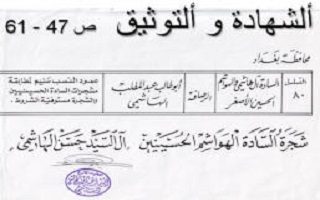 ألشهادة و ألتوثيق ص 47 - 61
محافظة بغداد
التسلسل
٨٠
السادة آل هاشمي والموسم
الحسين الأصغر
الرصافة
أبو طالب عبد المطلب
الهاشمي
عمود النسب سليم لمطابقة
مشجرات السادة الحسينيين
والشجرة مستوفية الشروط.
شجرة السادة الهواسم الحسينيين آل السيد حسن الهاشمي